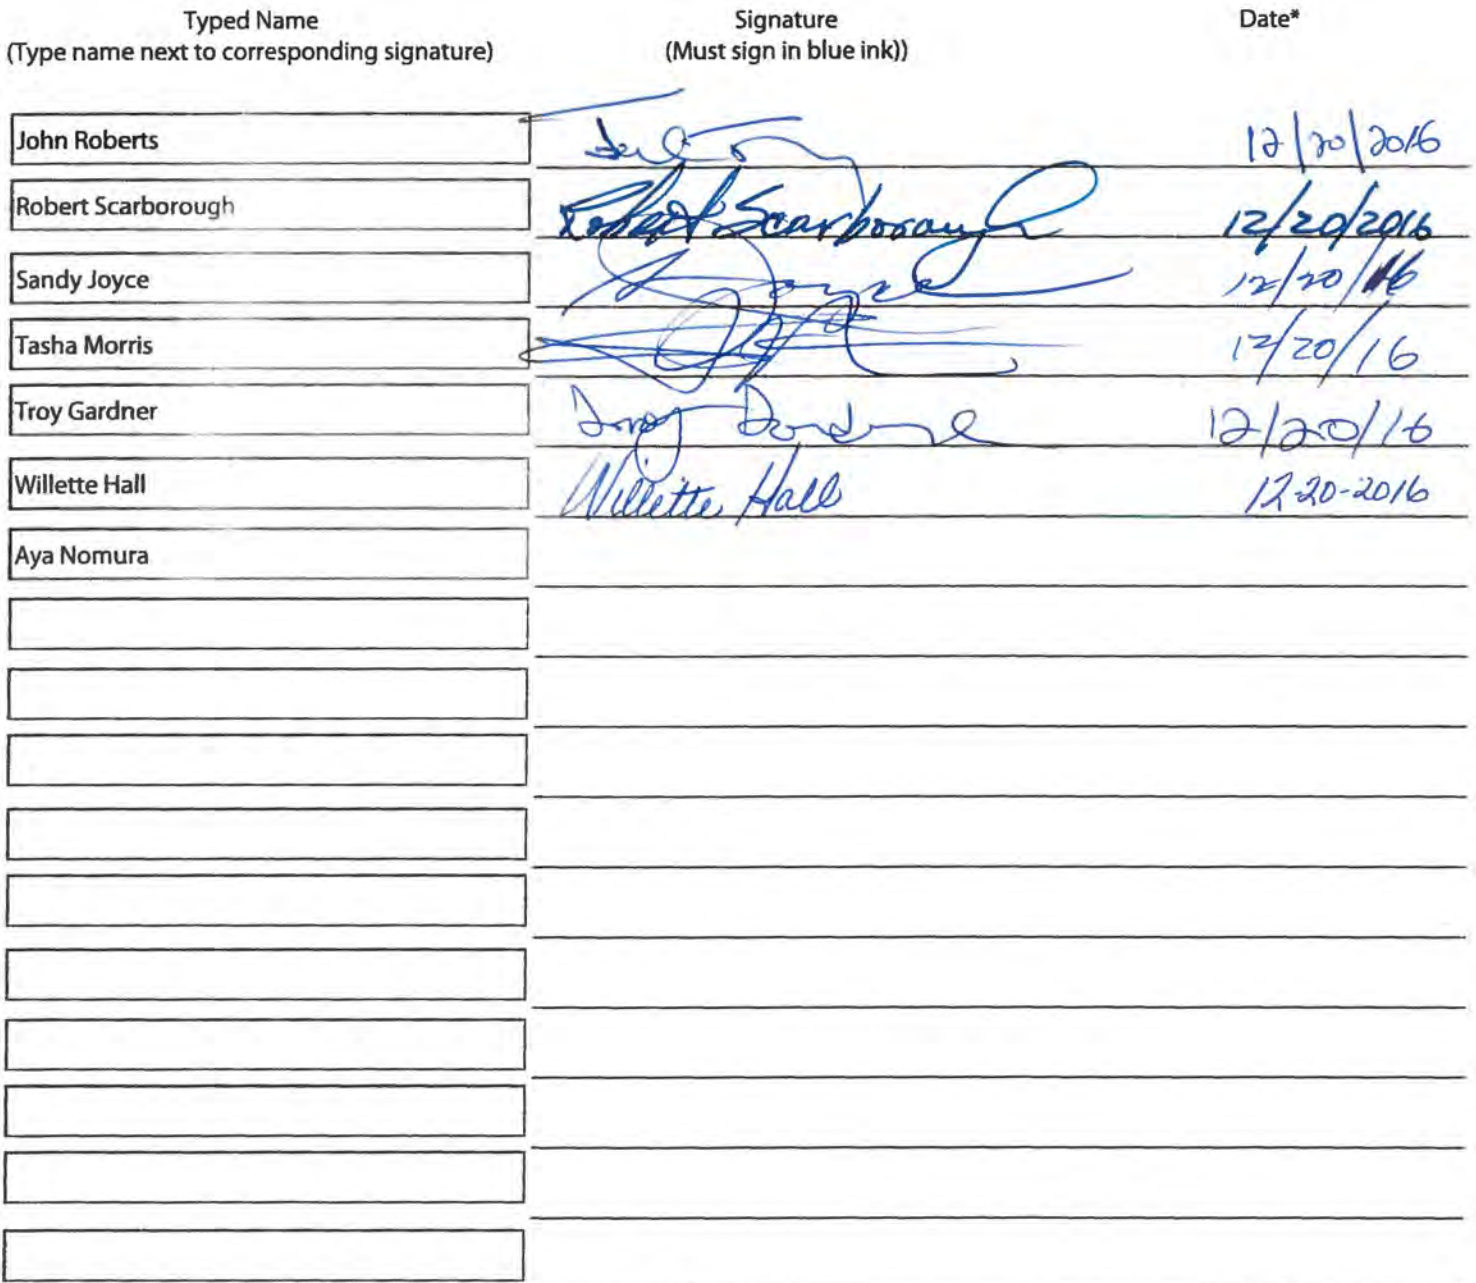 Typed Name Signature Date*
(Type name next to corresponding signature) (Must sign in blue ink))
John Roberts 12/20/2016
Robert Scarborough Robert Scarborough 12/20/2016
Sandy Joyce Joyce 12/20/16
Tasha Morris 12/20/16
Troy Gardner Troy Gardner 12/20/16
Willette Hall Willette Hall 12-20-2016
Aya Nomura